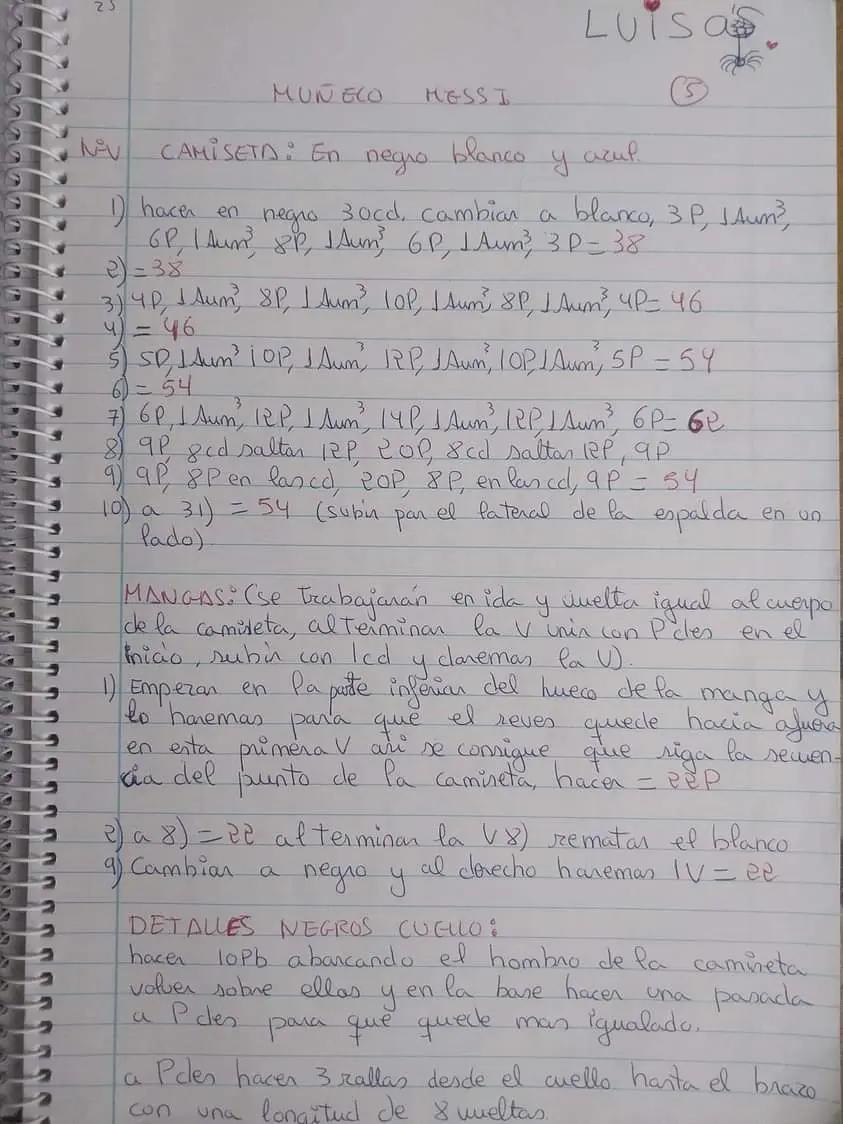 25
LUISA'S
MUÑECO MESSI
5
NºV CAMISETA: En negro blanco y azul.
1) hacer en negro 30cd. cambiar a blanco, 3P, 1Aum³,
6P, 1Aum³, 8P, 1Aum³, 6P, 1Aum³, 3P = 38
2) = 38
3) 4P, 1Aum³, 8P, 1Aum³, 10P, 1Aum³, 8P, 1Aum³, 4P = 46
4) = 46
5) 5P, 1Aum³ 10P, 1Aum³, 12P, 1Aum³, 10P, 1Aum³, 5P = 54
6) = 54
7) 6P, 1Aum³, 12P, 1Aum³, 14P, 1Aum³, 12P, 1Aum³, 6P = 62
8) 9P, 8cd saltar 12P, 20P, 8cd saltar 12P, 9P
9) 9P, 8P en las cd, 20P, 8P, en las cd, 9P = 54
10) a 31) = 54 (subir por el lateral de la espalda en un
lado)
MANGAS: (se trabajarán en ida y vuelta igual al cuerpo
de la camiseta, al terminar la V unir con Pdes en el
inicio, subir con 1cd y daremos la V).
1) Empezar en la parte inferior del hueco de la manga y
lo haremos para que el reves quede hacia afuera
en esta primera V asi se consigue que siga la secuen-
cia del punto de la camiseta, hacer = 22P
2) a 8) = 22 al terminar la V 8) rematar el blanco
9) Cambiar a negro y al derecho haremos 1V = 22
DETALLES NEGROS CUELLO:
hacer 10Pb abarcando el hombro de la camiseta
volver sobre ellas y en la base hacer una pasada
a Pdes para que quede mas igualado.
a Pdes hacer 3 rallas desde el cuello hasta el brazo
con una longitud de 8 vueltas.